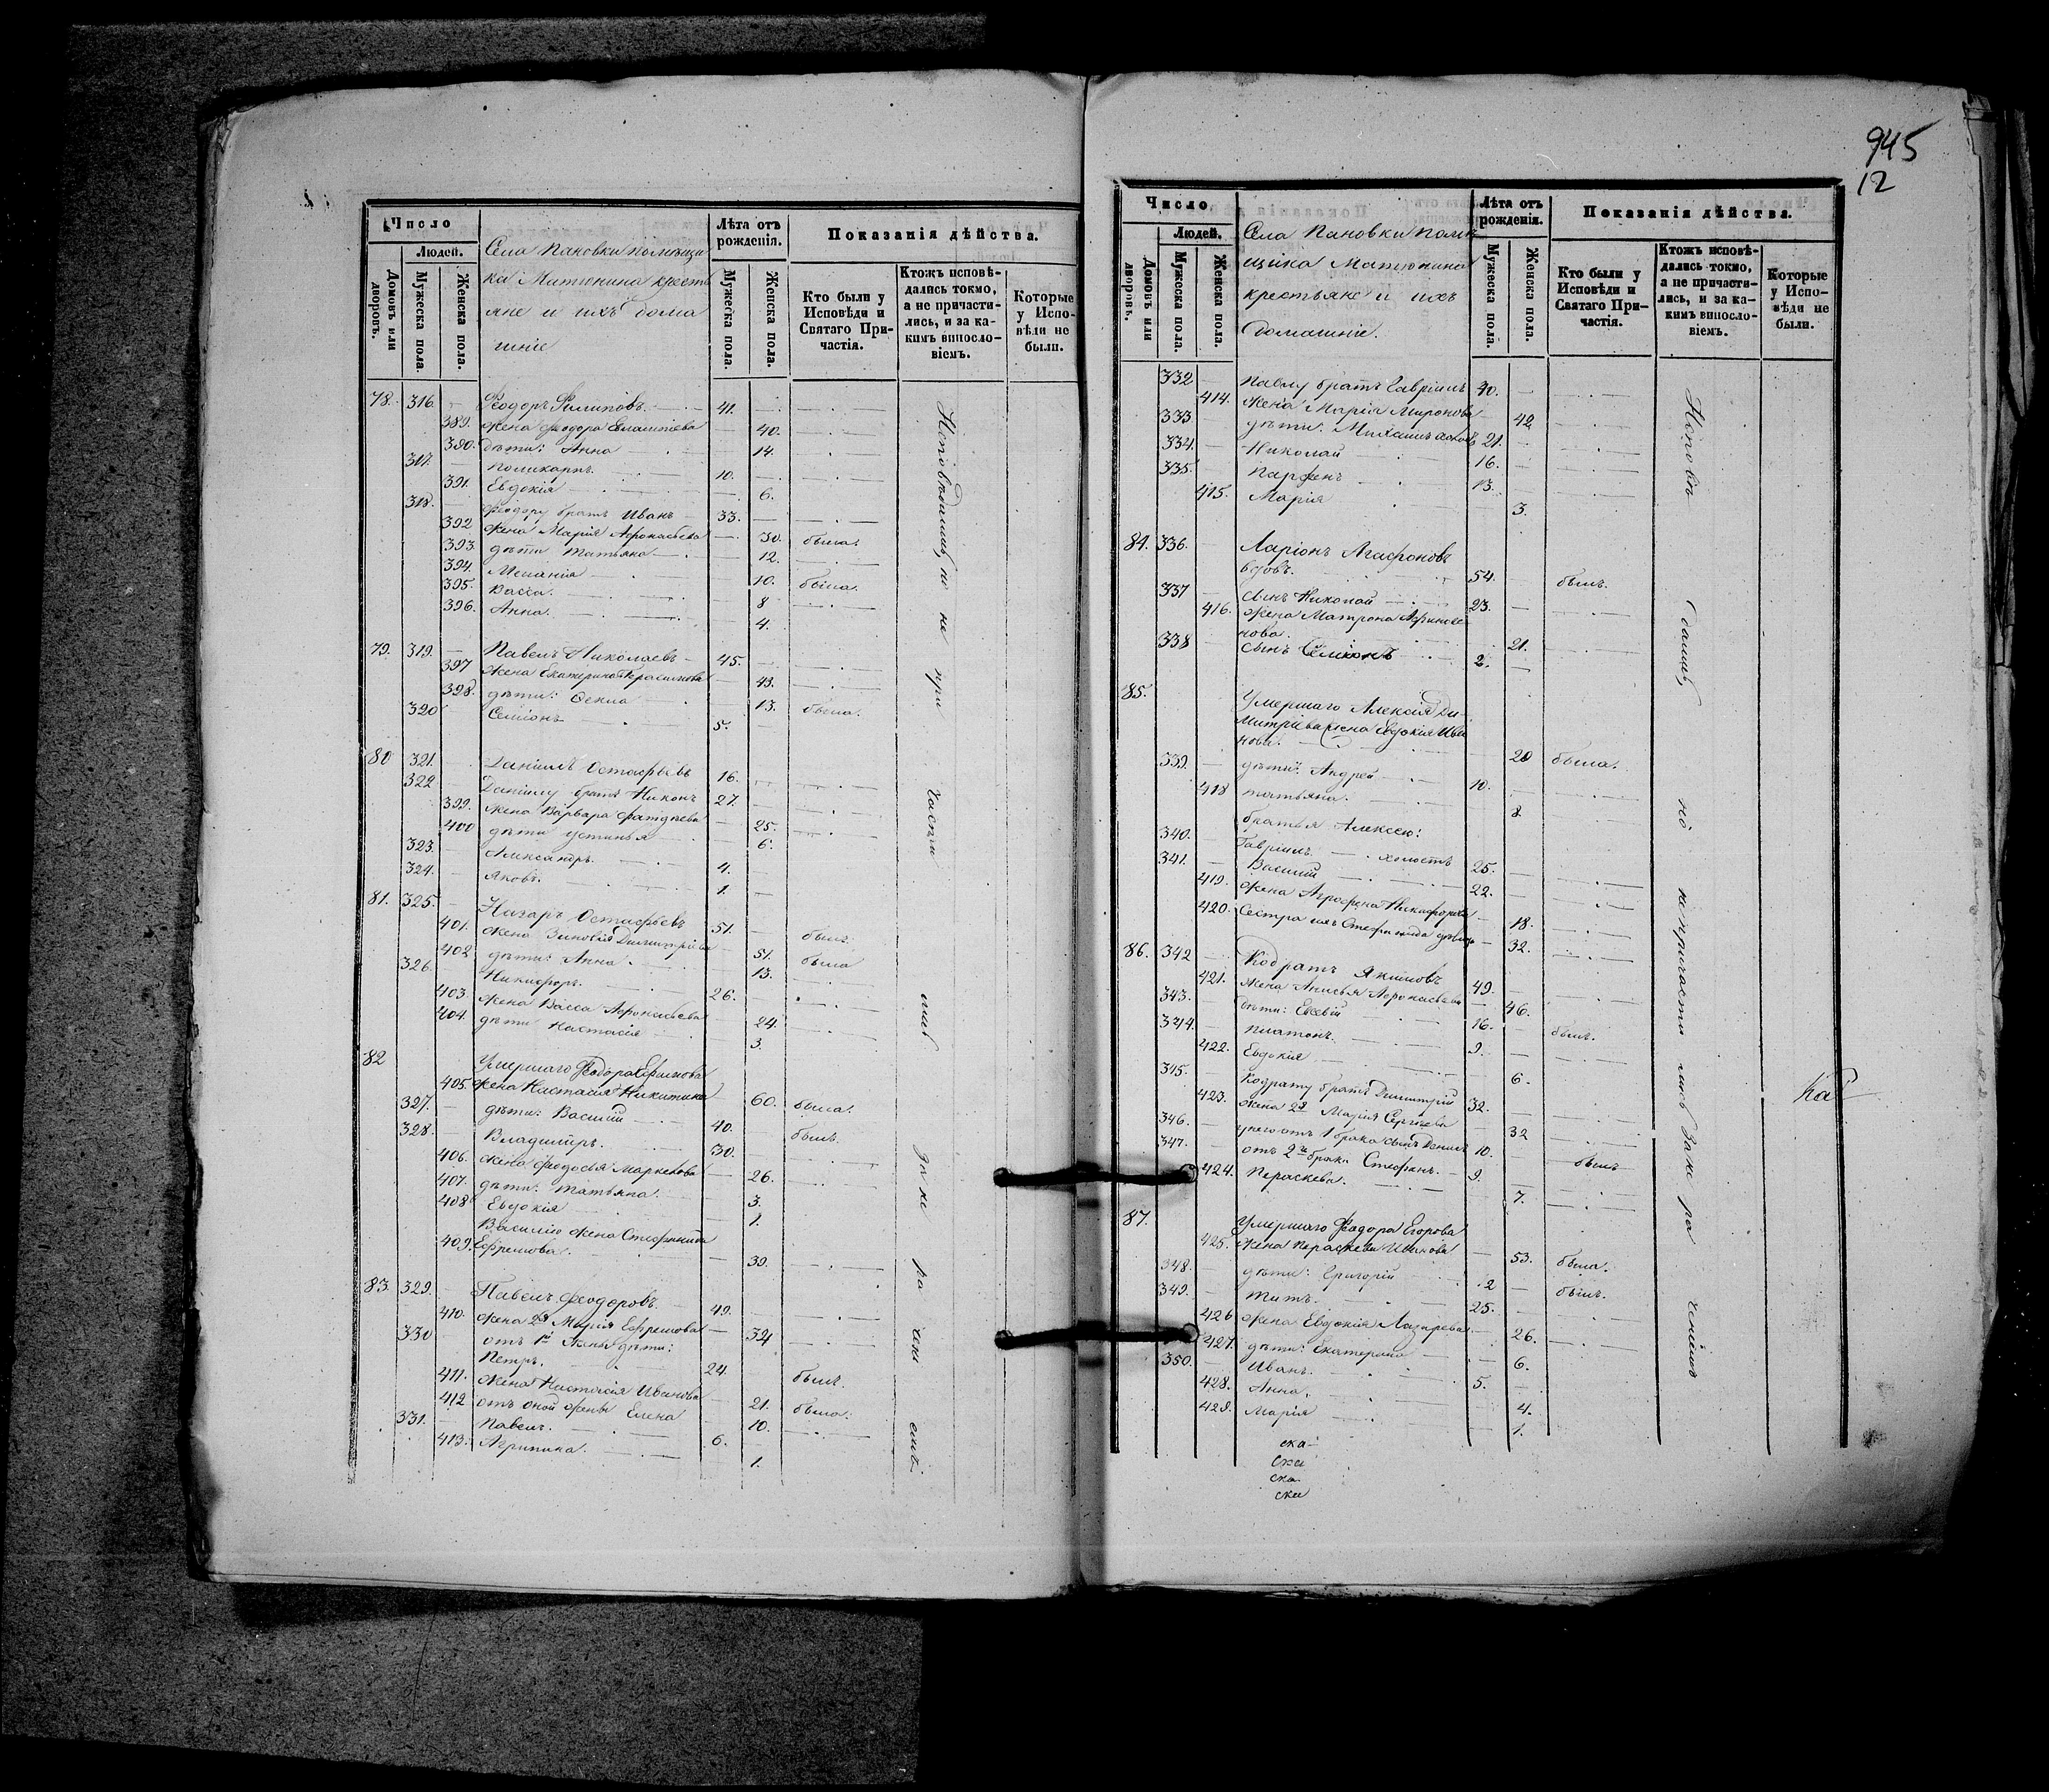 945
12
Число
Людей.
Домовъ или дворовъ.
Мужеска пола.
Женска пола.
Села Пановки помѣщи
ка Матюнина кресть
яне и ихъ дома
шніе
Лѣта отъ рожденія.
Мужеска пола.
Женска пола.
Показанія дѣйства.
Кто были у Исповѣди и Святаго При-частія.
Ктожъ исповѣ-дались токмо, а не причасти-лись, и за ка-кимъ винослo-віемъ.
Которые у Испо-вѣди не были.
78. 316. Ѳеодоръ Филиповъ. 41.
389. жена Ѳеодора 40.
390. дѣти: Анна 14.
317. Поликарпъ. 10.
391. Евдокія 6.
318. Ѳеодору братъ Иванъ 33.
392 жена Марія Афонасьева 30. была.
393. дѣти Татьяна 12.
394. Меланія 10. была.
395. Васса. 8
396. Анна. 4.
79. 319. Павелъ Николаевъ 45.
397 жена Екатерина Герасимова 43.
398. дѣти: Ѳекла 13. была.
320 Семіонъ 5.
80 321. Даніилъ Остафьевъ 16.
322 Даніилу братъ Никонъ 27.
399. жена Варвара Фатдѣева 25.
400 дѣти Устинья 6.
323. Александръ. 4.
324. Яковъ. 1.
81. 325. Назаръ Остафьевъ 51. былъ.
401. жена Зиновія Димитріева 51. была
402 дѣти: Анна. 13.
326. Никифоръ. 26.
403. жена Васса Афонасьева 24.
404. дѣти Настасія 3.
82 Умершаго Ѳеодора Ефимова
405. жена Настасія Никитина 60. была.
327. дѣти: Василій 40. былъ.
328. Владиміръ. 30.
406. жена Ѳеодосья Маркелова 26.
407. дѣти: Татьяна. 3.
408 Евдокія 1.
Василію жена Стефанида
409. Ефремова. 39.
83. 329. Павелъ Ѳеодоровъ. 49.
410. жена 2я Марія Ефремова 34
330 отъ 1й жены дѣти:
Петръ. 24. былъ.
411. жена Настасія Иванова 21. была.
412 отъ оной жены Елена 10.
331. Павелъ. 6.
413. Агрипина. 1.
Исповѣдались, но не при части лись за не ра чені емъ
Число
Людей.
Домовъ или дворовъ.
Мужеска пола.
Женска пола.
Села Пановки помѣ
щика Матюнина
крестьяне и ихъ
домашніе.
Лѣта отъ рожденія.
Мужеска пола.
Женска пола.
Показанія дѣйства.
Кто были у Исповѣди и Святаго При-частія.
Ктожъ исповѣ-дались токмо, а не причасти-лись, и за ка-кимъ винослo-віемъ.
Которые у Испо-вѣди не были.
332 Павлу братъ Гавріилъ 40.
414. жена Марія Миронова 42
333. дѣти: Михаилъ 21.
334. Николай 16.
335. Парфенъ 13.
415. Марія 3.
84. 336. Ларіонъ Агафоновъ
вдовъ. 54. былъ.
337 сынъ Николай 23.
416. жена Матрона
нова. 21.
338 сынъ Семіонъ 2.
85. Умершаго Алексія Ди-
митріева жена Евдокія Ива
нова. 28 была.
339. дѣти: Андрей 10.
418 Татьяна. 8
братья Алексею:
340. Гавріилъ холостъ 25.
341. Василій 22.
419. жена Агрофена Никифорова 18.
420. сестра ихъ Стефанида дѣвица 32.
86. 342 Кодратъ Якимовъ 49.
421. жена Анисья Афонасьева 46.
343. дѣти: Евсевій 16. былъ.
344. Платонъ. 9.
422. Евдокія 6.
345. Кодрату братъ Димитрій 32.
423. жена 2я Марія Сергѣева 32
346. у него отъ 1 брака сынъ Данилъ 10. былъ
347. отъ 2го брака Стефанъ. 9.
424. Пераскева. 7.
87. Умершаго Ѳеодора Егорова
425. жена Пераскева Иванова 53. была.
348. дѣти: Григорій 2 былъ.
349. Титъ. 25.
426 жена Евдокія Лазарева 26.
427. дѣти: Екатерина 6.
350. Иванъ. 5.
428. Анна. 4.
429. Марія 1.
Исповѣ дались, но не причасти лись за не ра ченіемъ
ска
ска
ска
ска